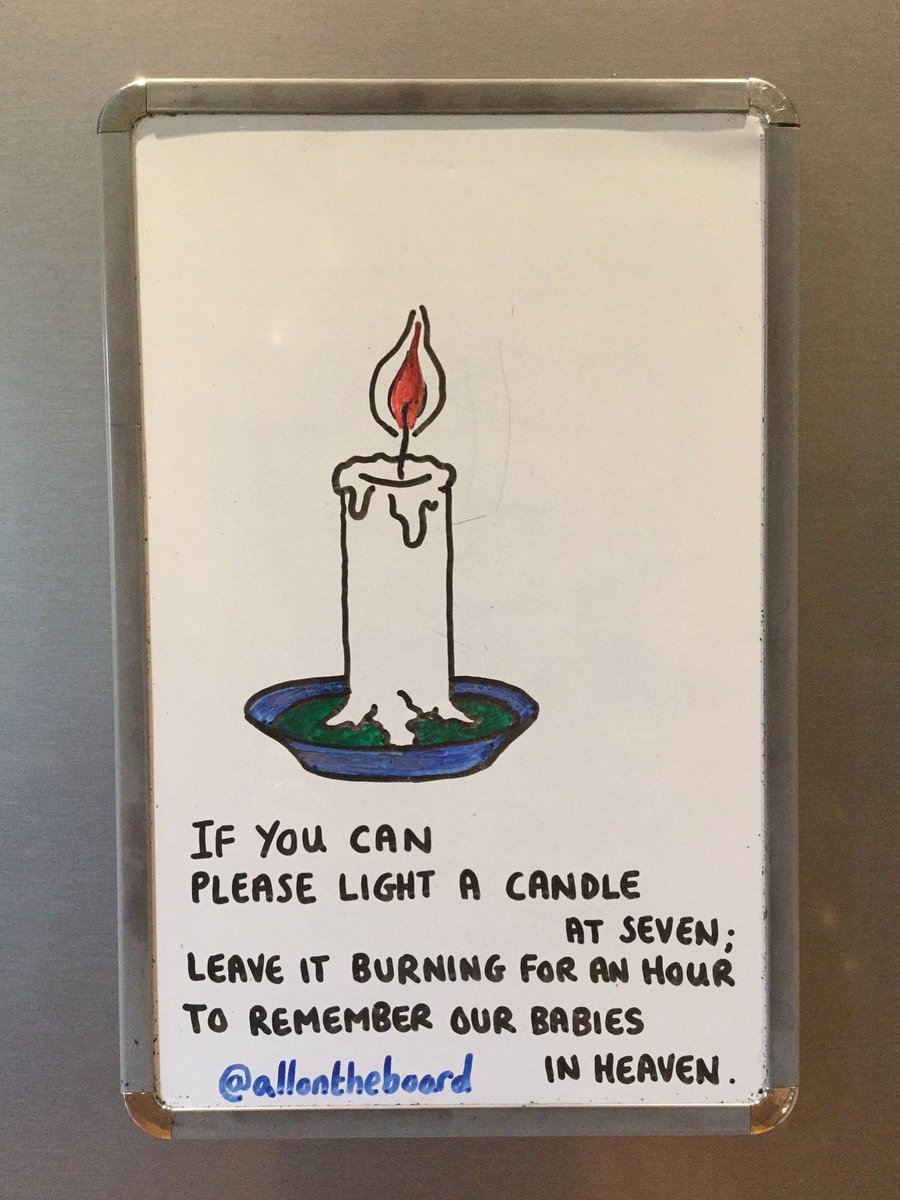 IF YOU CAN
PLEASE LIGHT A CANDLE
AT SEVEN;
LEAVE IT BURNING FOR AN HOUR
TO REMEMBER OUR BABIES
IN HEAVEN.
@allontheboard